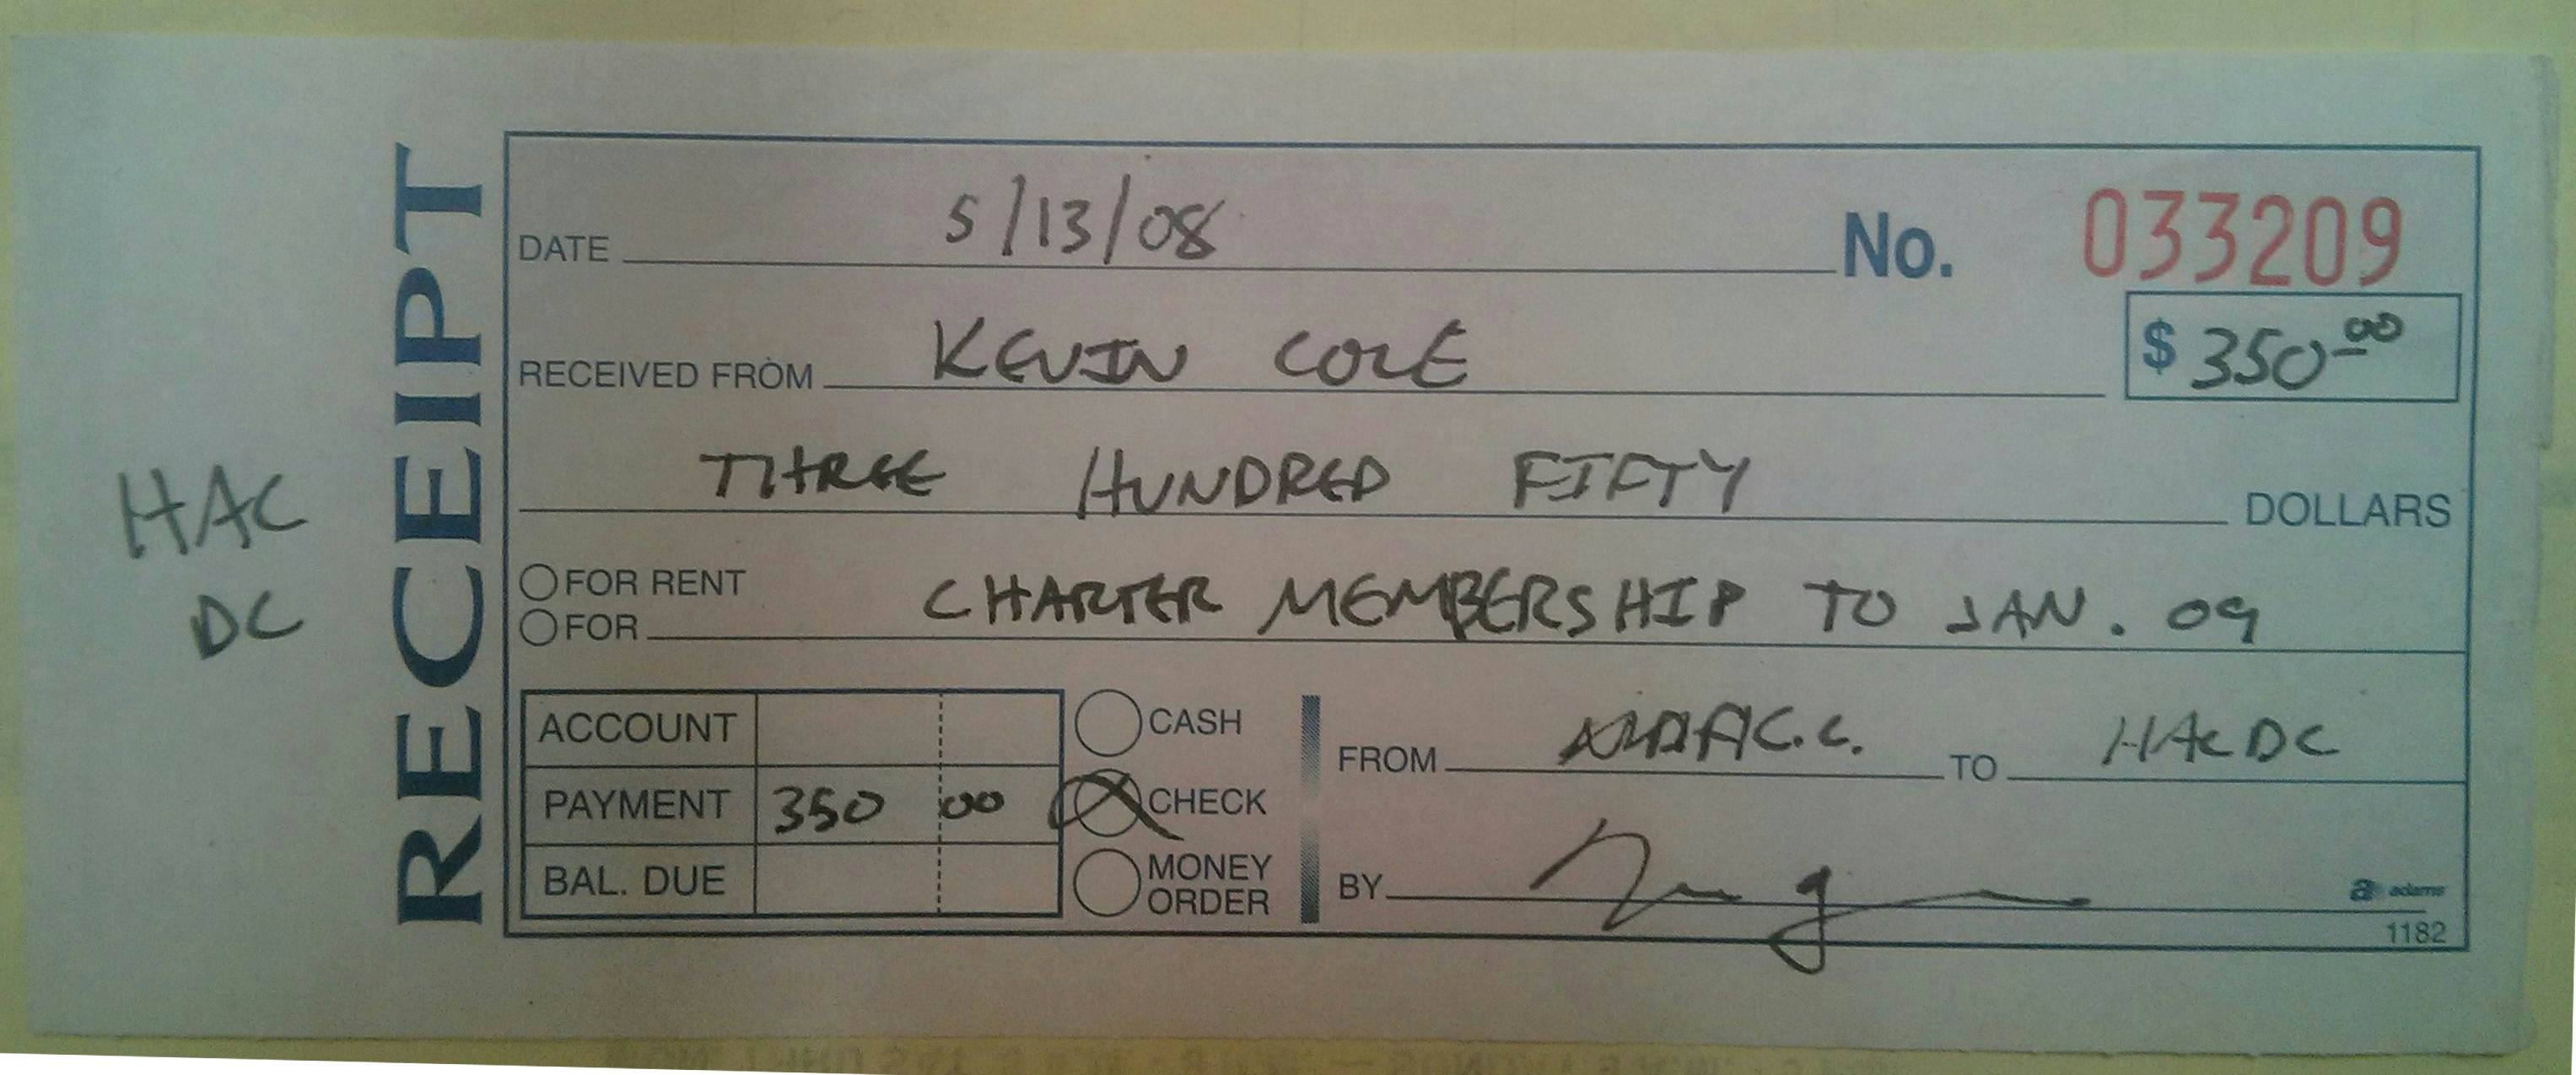 HAC
DC
RECEIPT
DATE 5/13/08 No. 033209
RECEIVED FROM KEVIN COLE $350.00
THREE HUNDRED FIFTY DOLLARS
FOR RENT
FOR CHARTER MEMBERSHIP TO JAN. 09
ACCOUNT
PAYMENT 350 00
BAL. DUE
CASH
CHECK
MONEY
ORDER
FROM K.C. TO HACDC
BY
a adams
1182